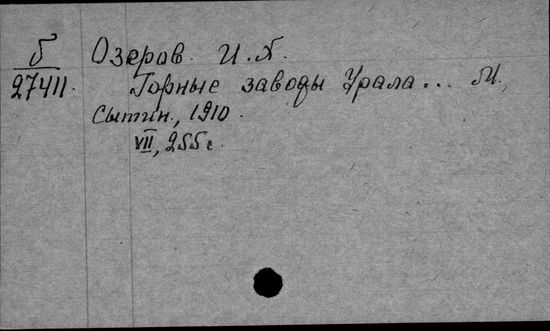 Б Озеров И.Х.
27411. Горные заводы Урала... М.,
Сытин, 1910.
VII, 255 с.